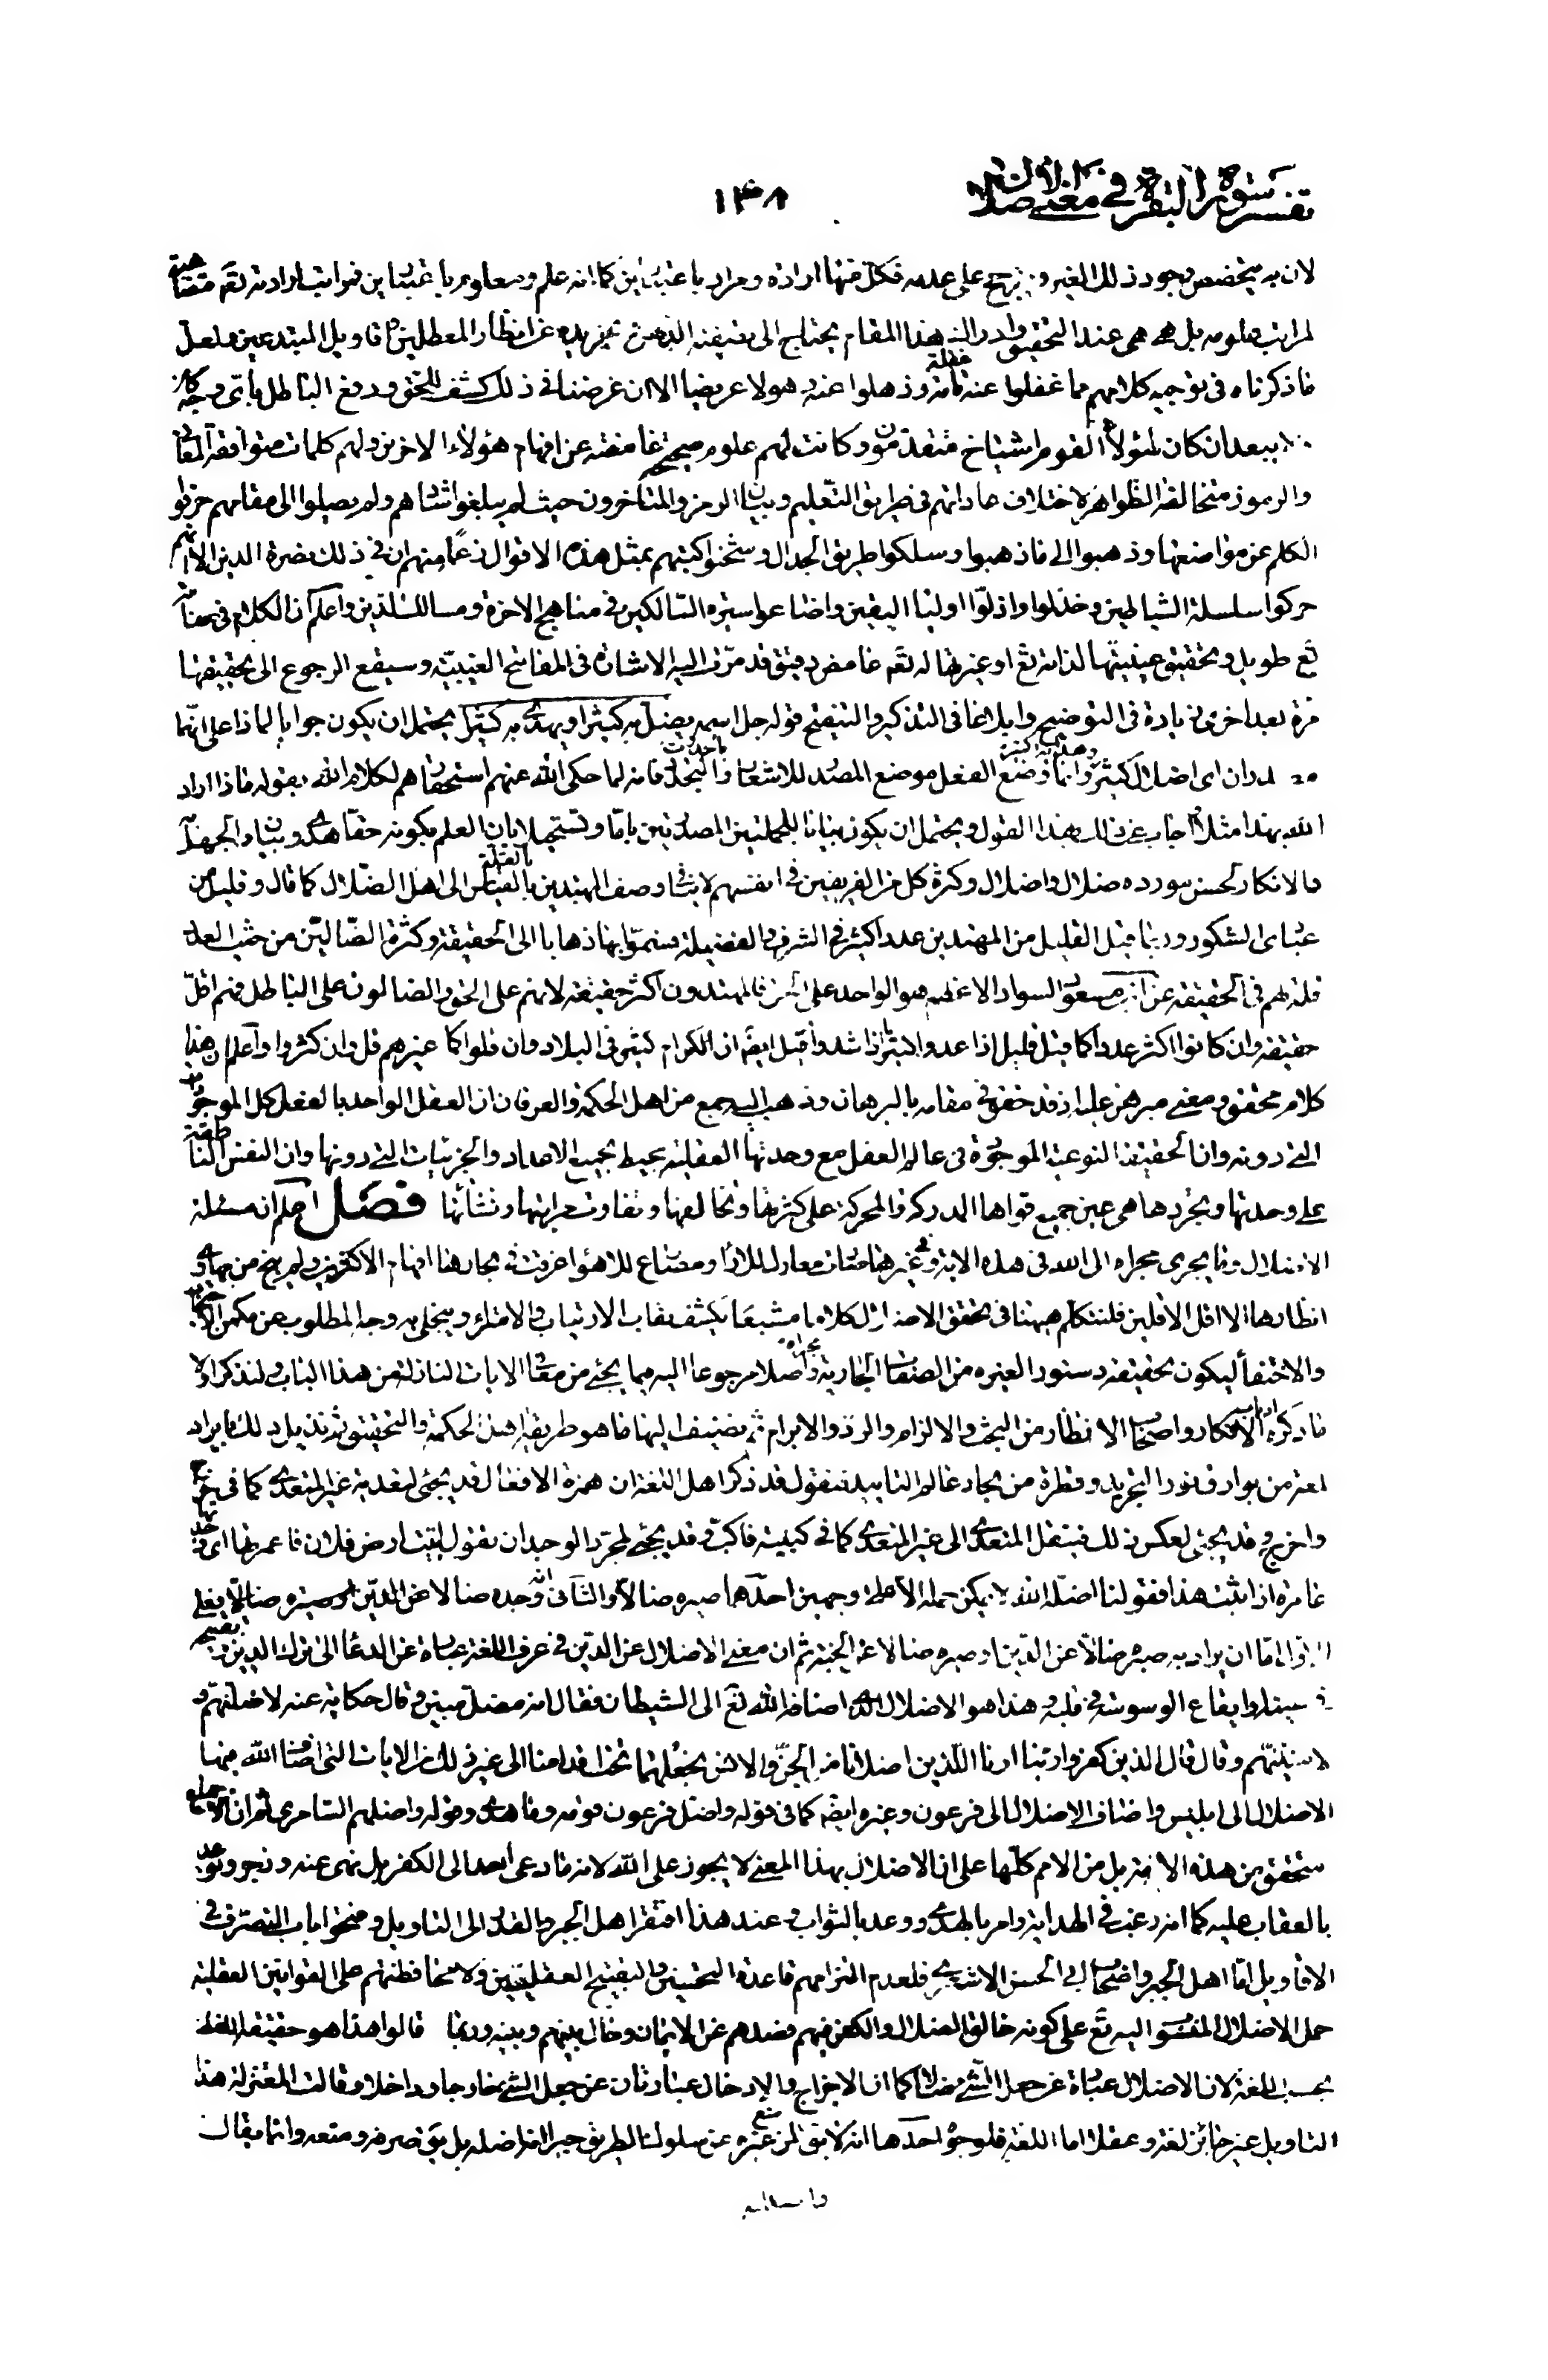 تفسير سورة البقرة في معنى الاضلال
١٣٨
لان به يتخصص وجود ذلك الغير و يترجح على عدمه فكل منها ارادة ومراد باعتبارين كما انه علم ومعلوم باعتبارين فمراتب ارادته تعم مضاهية
لمراتب علومه بل هي هي عند التحقيق وادراك هذا المقام يحتاج الى تلطيف الذهن تجريده عن انظار المعطلين واقاويل المبتدعين ولعل
ما ذكرناه في توجيه كلامهم مما غفلوا عنه غفلة تامة وذهلوا عنه ذهولا عريضا الا ان غرضنا في ذلك كشف الحق ودفع الباطل بأي وجه كان
ولا يبعد ان كان لهؤلاء القوم اشياخ متقدمون وكانت لهم علوم صحيحة غامضة عن افهام هؤلاء الاخرين ولهم كلمات متوافقة المعاني
والرموز متخالفة الظواهر لاختلاف عاداتهم في طريق التعليم وبيان الرمز والمتأخرون حيث لم يبلغوا شأوهم ولم يصلوا الى مقامهم حرفوا
الكلم عن مواضعها وذهبوا الى ما ذهبوا وسلكوا طريق الجدال وشحنوا كتبهم بمثل هذه الاقوال زعما منهم ان في ذلك نصرة الدين الا انهم
حركوا سلسلة الشياطين وخذلوا واذلوا اولياء اليقين واضاعوا سيرة السالكين في مناهج الاخرة ومسالك الدين واعلم ان الكلام في صفاته
تع طويل وتحقيق عينيتها لذاته تع او غيرها له تعم غامض دقيق قد مرت اليه الاشارة في المفاتيح الغيبية وسيقع الرجوع الى تحقيقها
مرة بعد اخرى زيادة في التوضيح وابلاغا في التذكير والتنقيح قوله جل اسمه يضل به كثيرا ويهدي به كثيرا يحتمل ان يكون جوابا لماذا على انهما
مصدران اى اضلال كثير وهداية كثيرة وانما وضع الفعل موضع المصدر للاشعار بالحدوث والتجدد فانه لما حكى الله عنهم استحقارهم لكلام الله بقوله ماذا اراد
الله بهذا مثلا اجاب عن ذلك بهذا القول ويحتمل ان يكون بيانا للجملتين المصدرتين باما وتسجيلا بان العلم بكونه حقا هدى وبيان وان الجهل
والانكار لحسن مورده ضلال واضلال وكثرة كل من الفريقين في انفسهم لا ينافي وصف المهتدين بالقلة بالقياس الى اهل الضلال كما قال وقليل من
عبادي الشكور وربما قيل القليل من المهتدين عدد اكثير في الشرف والفضيلة فسموا بها ذهابا الى الحقيقة وكثرة الضالين من حيث العدد
قلة لهم في الحقيقة عن ابن مسعود السواد الاعظم هو الواحد على الحق فالمهتدون اكثر حقيقة لانهم على الحق والضالون على الباطل فهم اقل
حقيقة وان كانوا اكثر عددا كما قيل قليل اذا عدوا كثير اذا شدوا وقيل ايضا ان الكرام كثير في البلاد وان قلوا كما غيرهم قل وان كثروا واعلم ان هذا
كلام محقق ومعنى مبرهن عليه اذ قد حقق في مقامه بالبرهان وذهب اليه جمع من اهل الحكمة والعرفان ان العقل الواحد بالفعل كل الموجودات
التي دونه وان الحقيقة النوعية الموجودة في عالم العقل مع وحدتها العقلية يحيط بجميع الاعداد والجزئيات التي دونها وان النفس الناطقة
على وحدتها وتجردها هي عين جميع قواها المدركة والمحركة على كثرتها وتخالفها وتفاوت مراتبها ونشأتها فصل اعلم ان مسئلة
الاضلال وما يجري مجراه الى الله في هذه الاية وغيرها صارت معارك للآراء ومصارع للاهواء حيث تحار فيها افهام الاكثرين ولم ينج من مهاوي
انظارها الا اقل الاقلين فلنتكلم ههنا في تحقق الاضلال كلاما مشبعا يكشف نقاب الارتياب والامتراء ويتجلى به وجه المطلوب عن مكمن الاحتجاب
والاختفاء ليكون تحقيقه دستورا لغيره من الصفات الجارية مجراه واصلا مرجوعا اليه فيما يجئ من معاني الايات النازلة من هذا الباب ولنذكر اولا
ما ذكره ارباب الافكار واصحاب الانظار من البحث والالزام والرد والابرام ثم نضيف اليها ما هو طريقة اهل الحكمة والتحقيق ثم تذييل ذلك بايراد
لمعة من بوارق نور التجريد وقطرة من بحار عالم التأييد فنقول قد ذكر اهل اللغة ان همزة الافعال قد يجئ لتعدية غير المتعدي كما في خرج
واخرج وقد يجئ لعكس ذلك فينقل المتعدي الى غير المتعدي كما في كببته فاكب وقد يجئ لمجرد الوجدان نقول اتيت ارض فلان فاعمرتها اى وجدتها
عامرة اذا ثبت هذا فقولنا اضله الله لا يمكن حمله الا على وجهين احدهما صيره ضالا والثاني انه وجده ضالا اما الاول
اما ان يراد به صيره ضالا عن الدين او صيره ضالا عن الجنة ثم ان معنى الاضلال عن الدين في عرف اللغة عبارة عن الدعاء الى ترك الدين وتقبيحه
في عينه وايقاع الوسوسة في قلبه وهذا هو الاضلال الذي اضافه الله تع الى الشيطان فقال انه عدو مضل مبين وقال حكاية عنه لاضلنهم و
لامنينهم وقال قال الذين كفروا ربنا ارنا اللذين اضلانا من الجن والانس نجعلهما تحت اقدامنا الى غير ذلك من الايات التي اضاف الله فيها
الاضلال الى ابليس واضاف الاضلال الى فرعون وغيره ايضا كما في قوله واضل فرعون قومه وما هدى وقوله واضلهم السامري ثم ان الاجماع
متحقق من هذه الامة بل من الامم كلها على ان الاضلال بهذا المعنى لا يجوز على الله لانه ما دعى احدا الى الكفر بل نهى عنه وزجر وتوعد
بالعقاب عليه كما انه رغب في الهداية وامر بالهدى ووعد بالثواب وعند هذا افتقر اهل الجبر والقدر الى التأويل وفتحوا باب التصرف في
الاقاويل اما اهل الجبر واصحاب ابي الحسن الاشعري فلعدم التزامهم قاعدة التحسين والتقبيح العقليين ولا محافظتهم على القوانين العقلية
حمل الاضلال المنسوب اليه تع على كونه خالق الضلال والكفر فيهم فصدهم عن الايمان وحال بينهم وبينه وربما قالوا هذا هو حقيقة اللفظ
بحسب اللغة لان الاضلال عبارة عن جعل الشئ ضالا كما ان الاخراج والادخال عبارتان عن جعل الشئ خارجا وداخلا وقالت المعتزلة هذا
التاويل غير جائز لغة وعقلا اما اللغة فلوجوه احدها انه لا يقال لمن منع غيره عن سلوك الطريق جبرا انه اضله بل يقال صرفه ومنعه وانما يقال